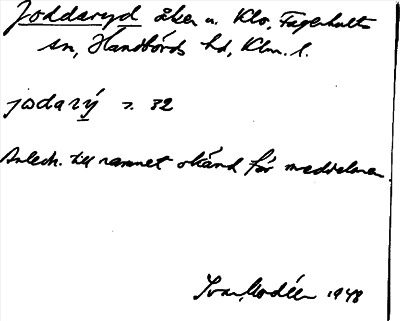 Joddaryd åker u. Klo, Fagerhults
sn, Handbörds hd, Klm. l.
jodarý s. 32
Anledn. till namnet okänd för meddelaren.
Ivar Modéer 1948